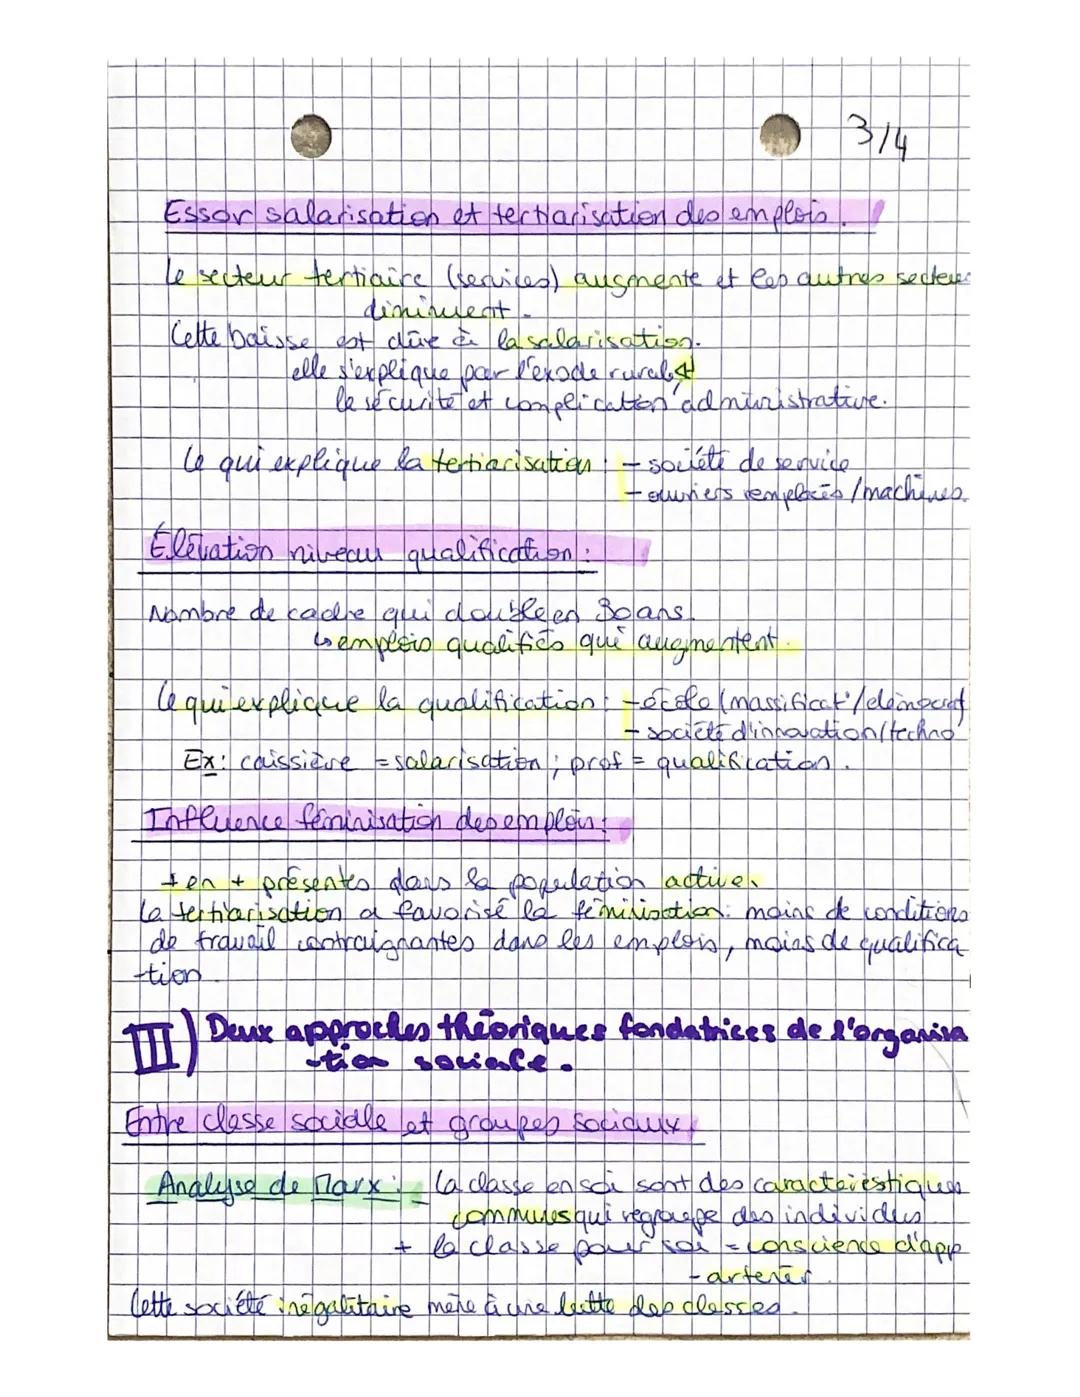 3/4
Essor salarisation et tertiarisation des emplois.
Le secteur tertiaire (services) augmente et les autres secteurs
diminuent.
Cette baisse est dûe à la salarisation.
elle s'explique par l'exode rural,
la sécurité et complication administrative.
Ce qui explique la tertiarisation : - société de service
- ouvriers remplacés / machines.
Élévation niveau qualification :
Nombre de cadre qui double en 30 ans.
↳ emplois qualifiés qui augmentent.
Ce qui explique la qualification : - école (massificat°/démocrat
- société d'innovation (techno
Ex : caissière = salarisation ; prof = qualification.
Influence féminisation des emplois :
+ en + présentes dans la population active.
La tertiarisation a favorisé la féminisation : moins de conditions
de travail contraignantes dans les emplois, moins de qualifica
-tion
III) Deux approches théoriques fondatrices de l'organisa
-tion sociale.
Entre classe sociale et groupes sociaux
Analyse de Marx : La classe en soi sont des caractéristiques
communes qui regroupe des individus
+ la classe pour soi = conscience d'app
-artenir.
Cette société inégalitaire mène à une lutte des classes.